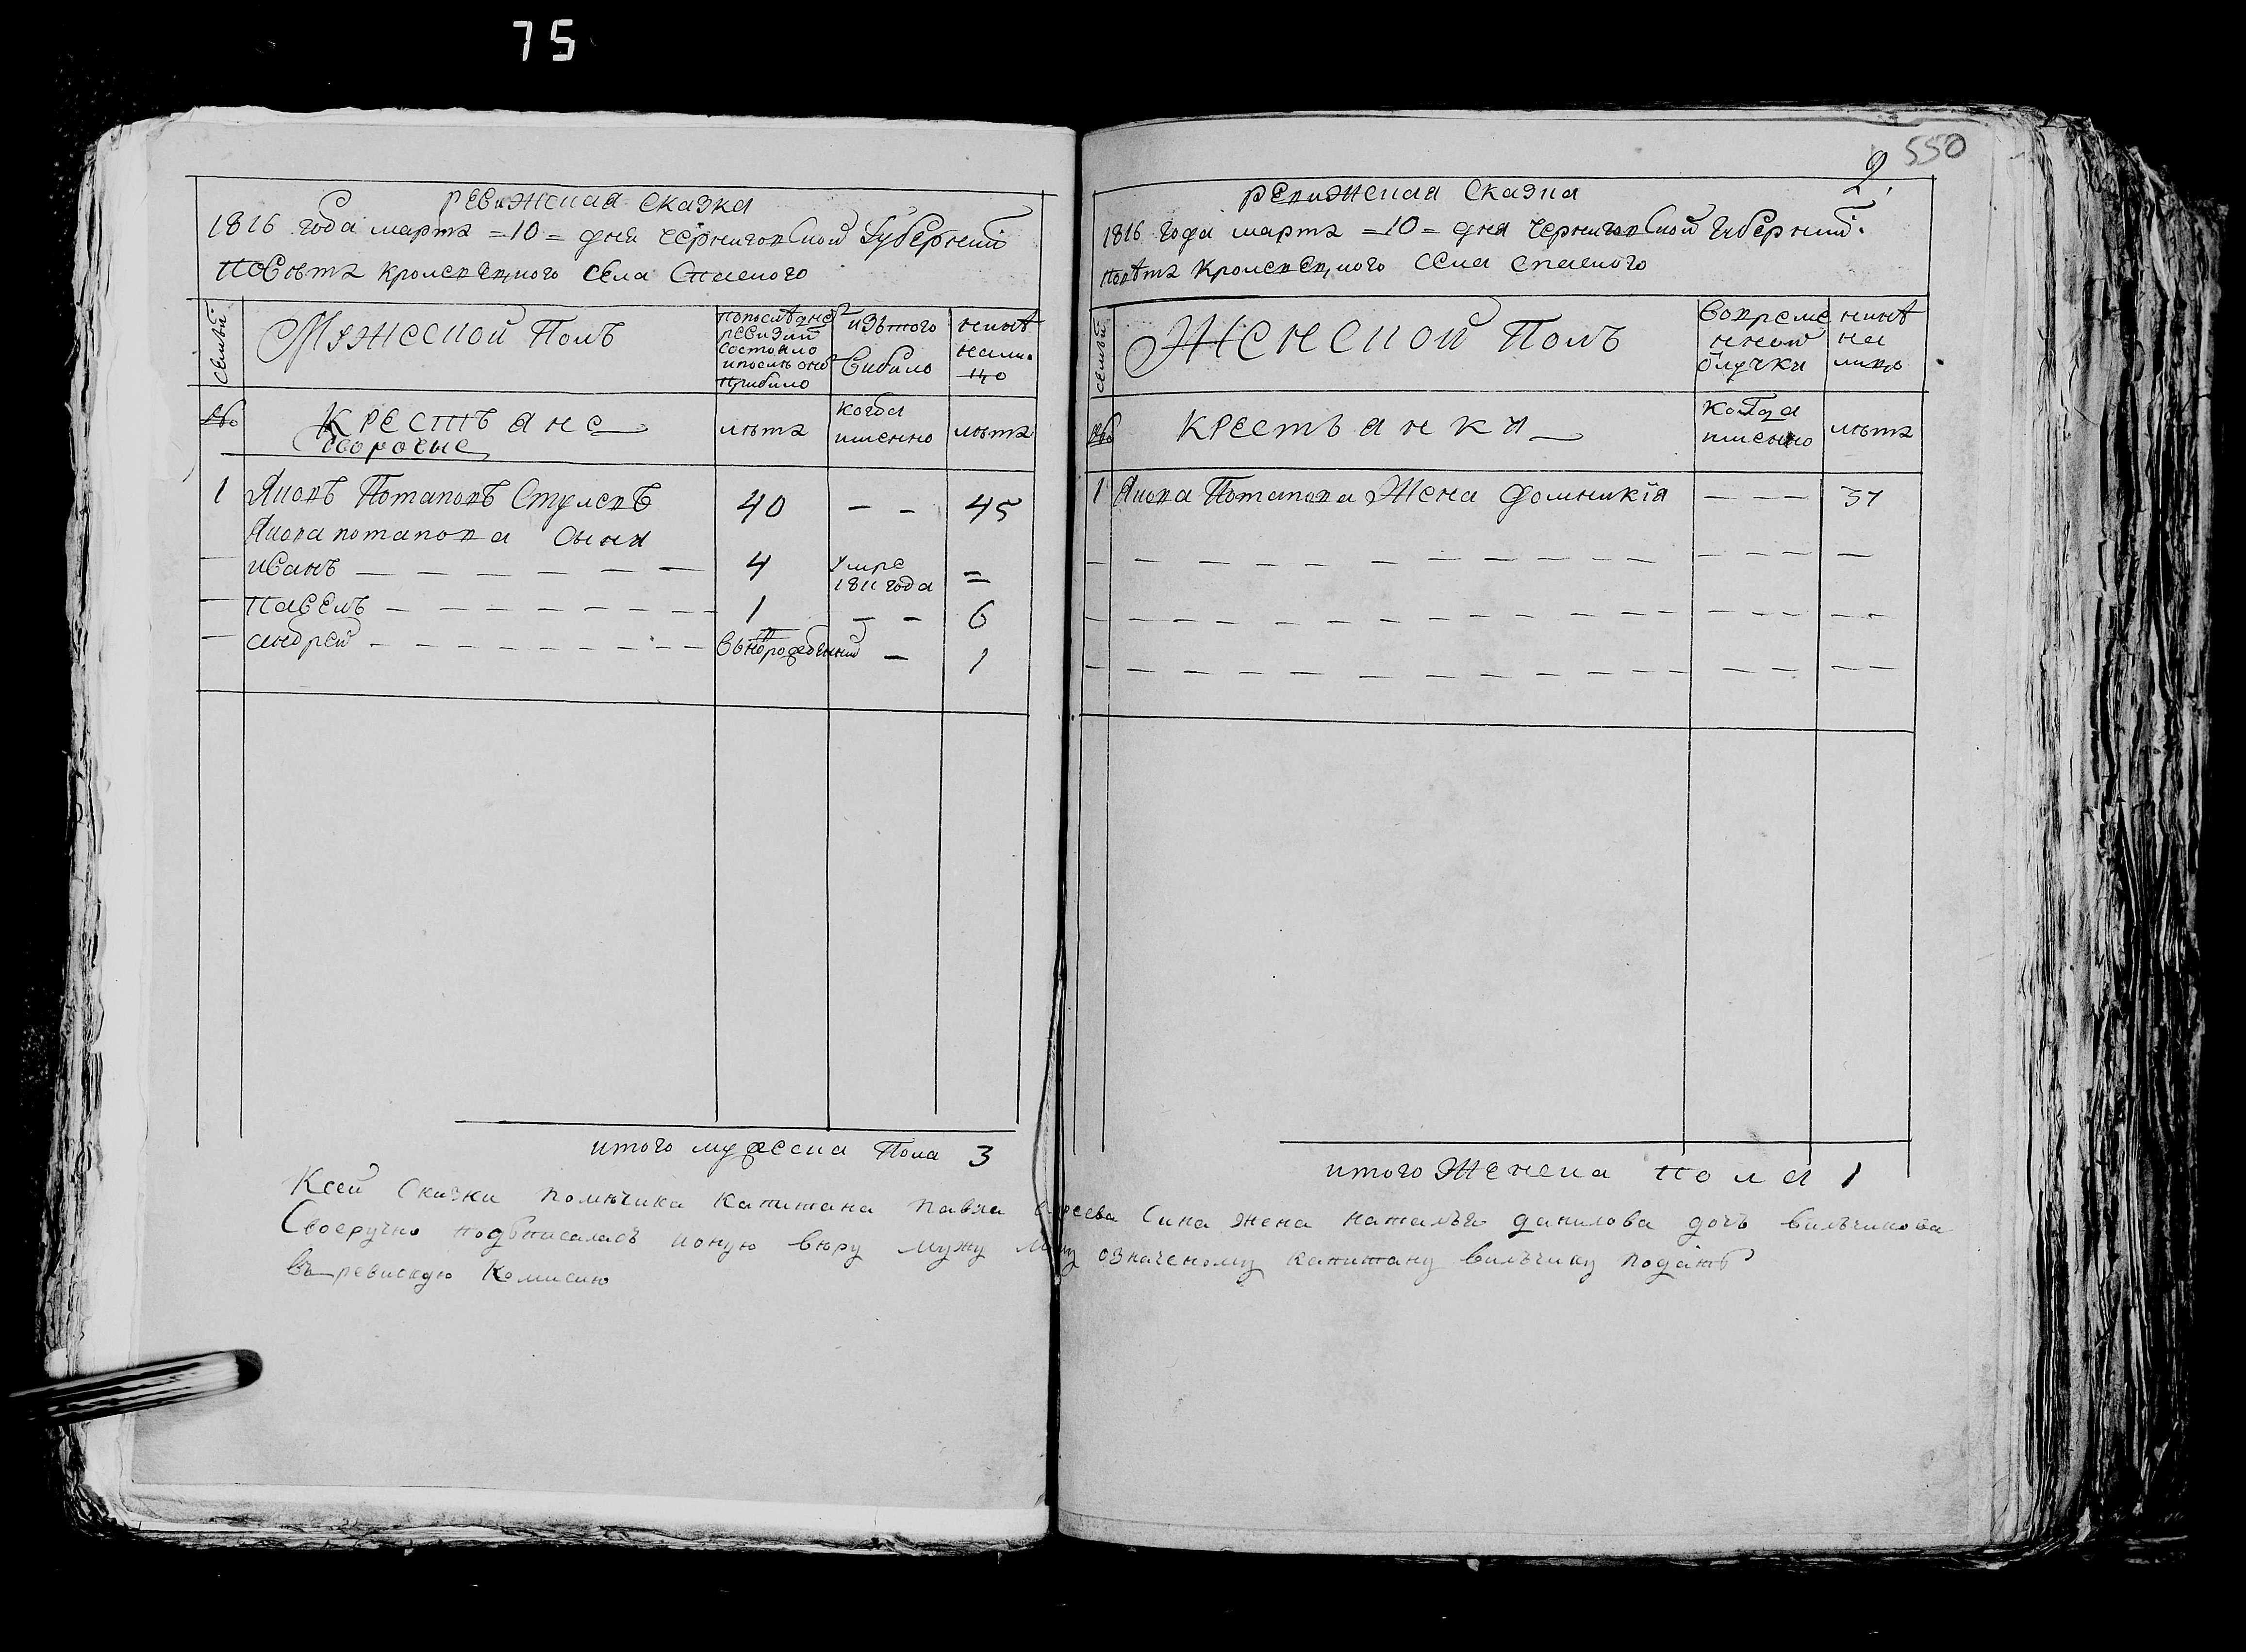 75
ревижская сказка
1816 года марта =10= дня черниговской Губерний
Повѣта кролевецкого Села Спаского
семьй
Мужеской Полъ
попослѣдне
ревизий
состояло
ипослѣ оной
прибило
изътого
Вибило
нинѣ
нали-
цо
№
Крестьане
дворовые
лѣта
когда
именно
лѣта
1 Яковъ Потаповъ 40 — — 45
Якова потапова Сыни
— иванъ — — — — — — 4 умре 1811 года =
— Павелъ — — — — — — — — 1 — — 6
— андрей — — — — — — — — вновьрожденний — 1
итого мужеска Пола 3
550
2,
ревижская Сказка
1816 Года марта =10= дня черниговской Губерний.
повѣта Кролевецкого Села спаского
семьй
Женской Полъ
Вовреме
нной
Ѿлучки
нинѣ
на
лицо
№
Крестьанки
Когда
именно
лѣта
1 Якова Потапова Жена домникія — — — 37
итого Женска Пола 1
Ксей Сказки помѣщика Капитана павла Сина жена наталья данилова дочъ вилъчикова
Своеручно подъписаласъ ионую вѣру мужу моему означеному капитану вилъчику подать
въ ревискую Комисию